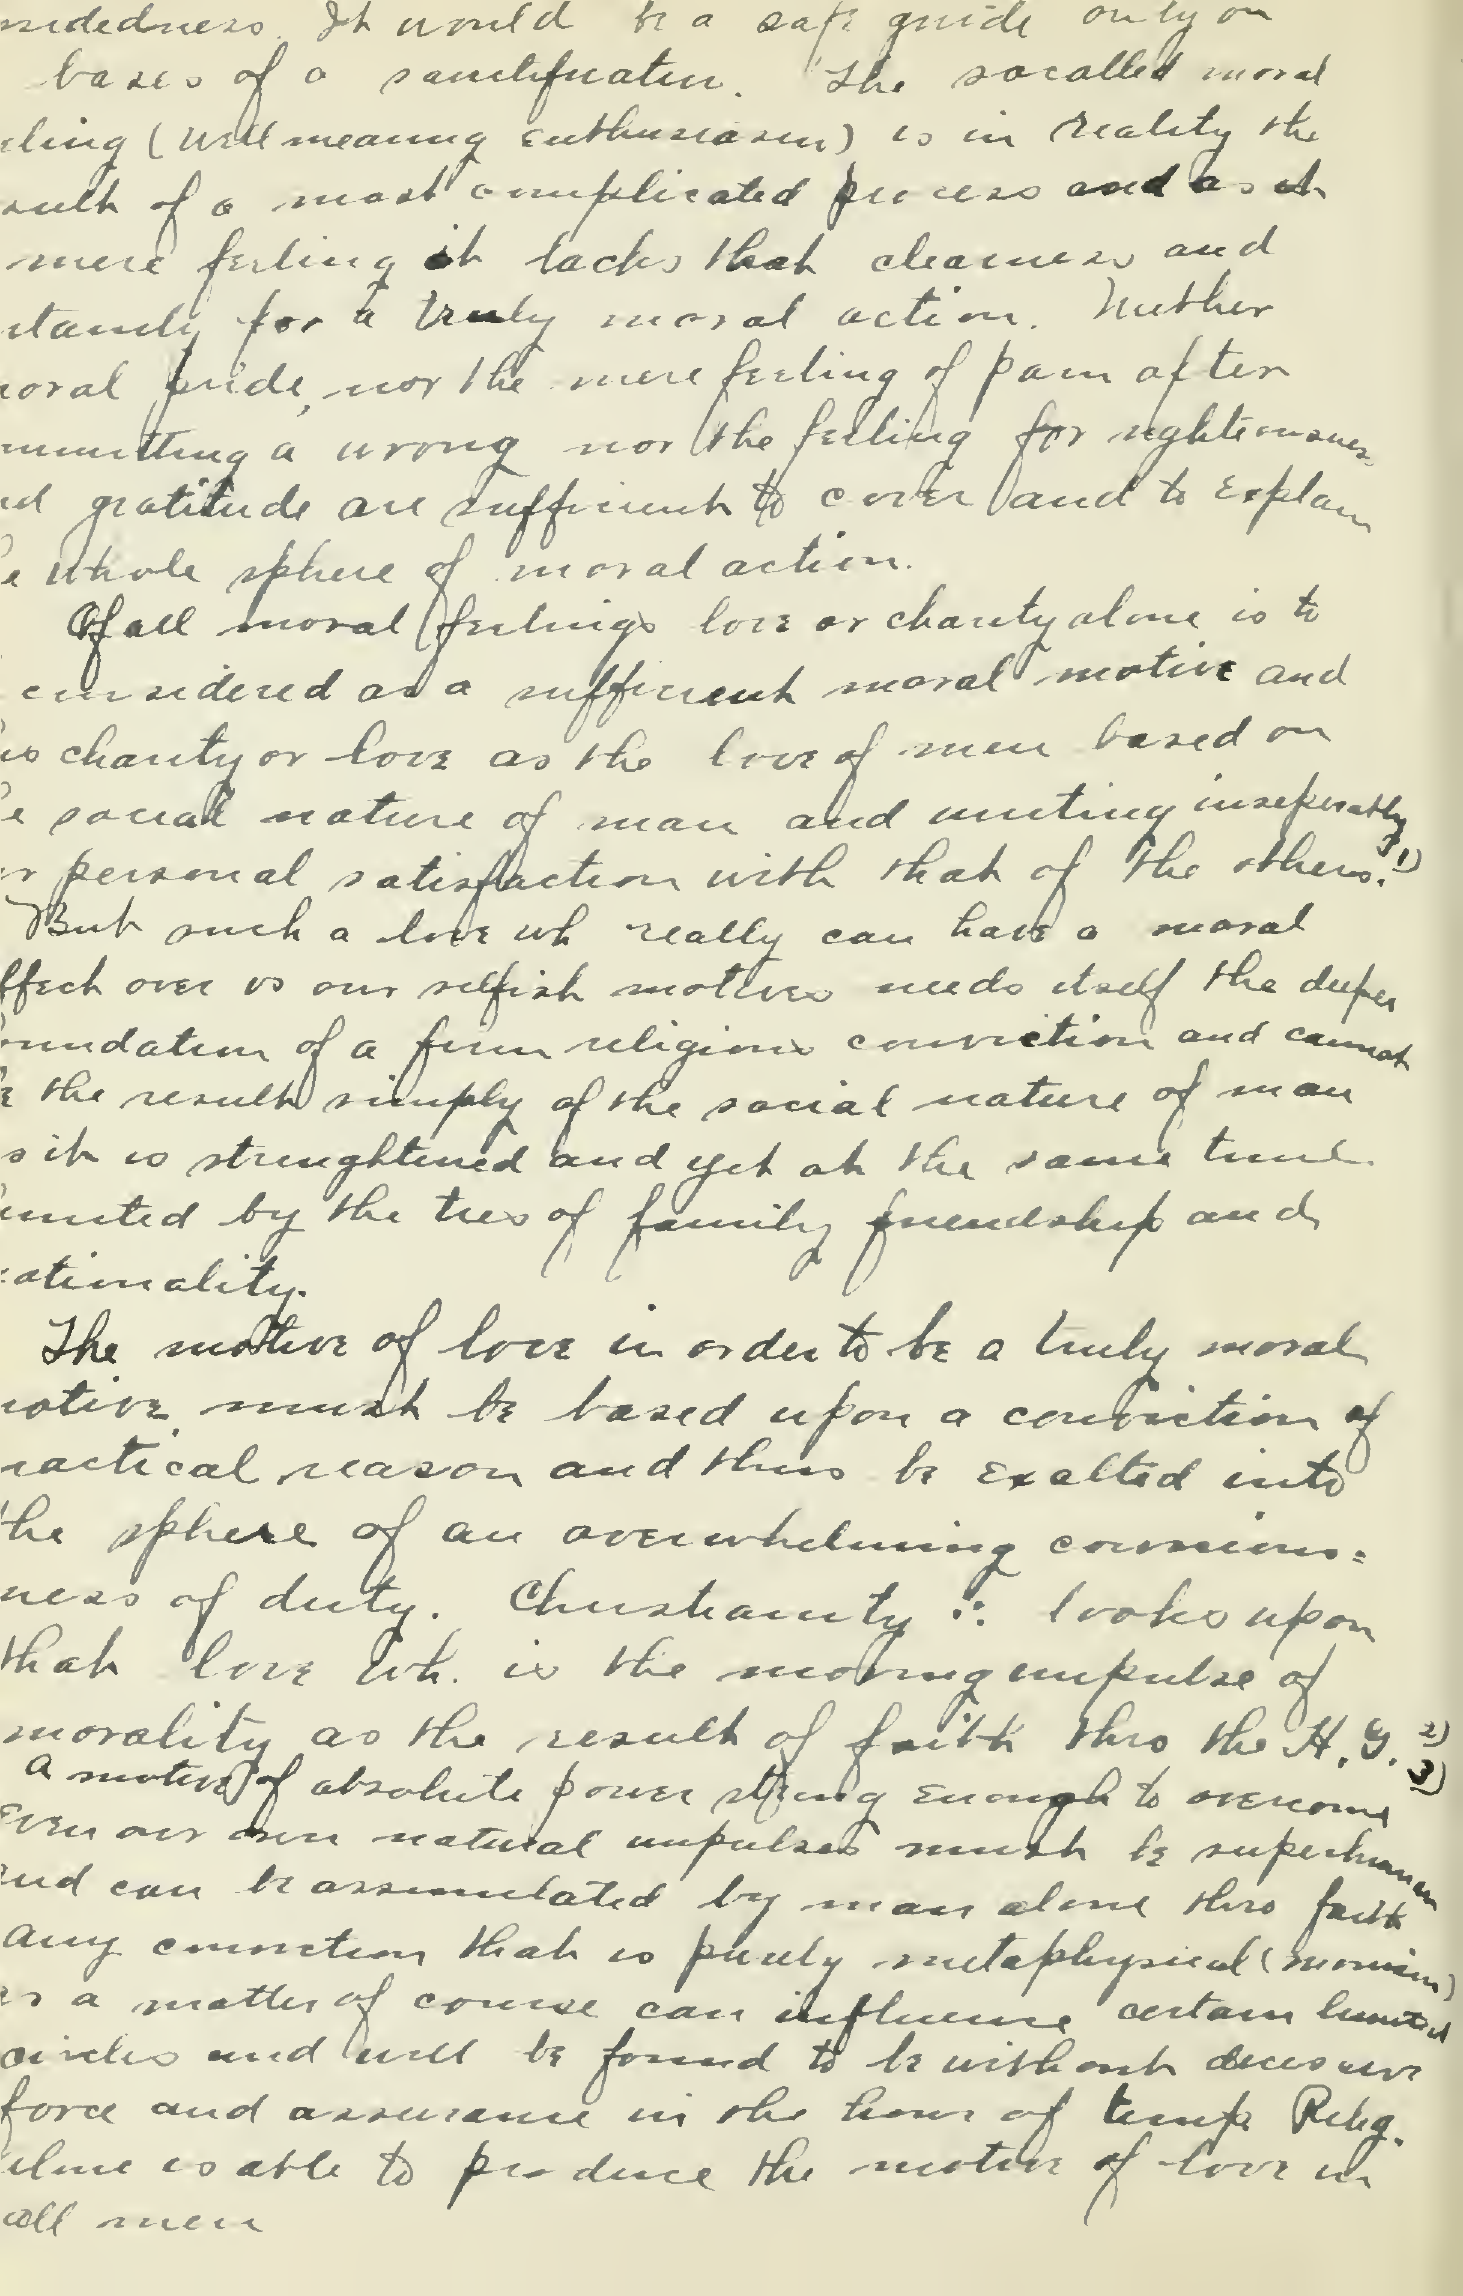 sidedness. It would be a safe guide only on
bases of a sanctification. The socalled moral
eling (well meaning enthusiasm) is in reality the
sult of a most complicated process and as it
mere feeling it lacks that clearness and
stancy for a truly moral action. Neither
moral pride, nor the mere feeling of pain after
mmitting a wrong nor the feeling for righteousness
nd gratitude are sufficient to cover and to explain
e whole sphere of moral action.
Of all moral feelings love or charity alone is to
considered as a sufficient moral motive and
is charity or love as the love of men based on
e social nature of man and uniting inseperably
r personal satisfaction with that of the others. 1)
But such a love wh really can have a moral
ffect over vs our selfish motives needs itself the deeper
oundation of a firm religious conviction and cannot
e the result simply of the social nature of man
s it is strenghtened and yet at the same time
imited by the ties of family friendship and
ationality.
The motive of love in order to be a truly moral
motive must be based upon a conviction of
ractical reason and thus be exalted into
the sphere of an overwhelming conscious=
ness of duty. Christianity ∴ looks upon
that love wh. is the moving impulse of
morality as the result of faith thro the H. G. 2)
A motive of absolute power strong enough to overcome 3)
even our own natural impulses must be superhuman
and can be assimilated by man alone thro faith
Any conviction that is purely metaphysical (monism)
as a matter of course can influence certain limited
circles and will be found to be without decisive
force and assurance in the hour of temp. Relig.
alone is able to produce the motive of love in
all men